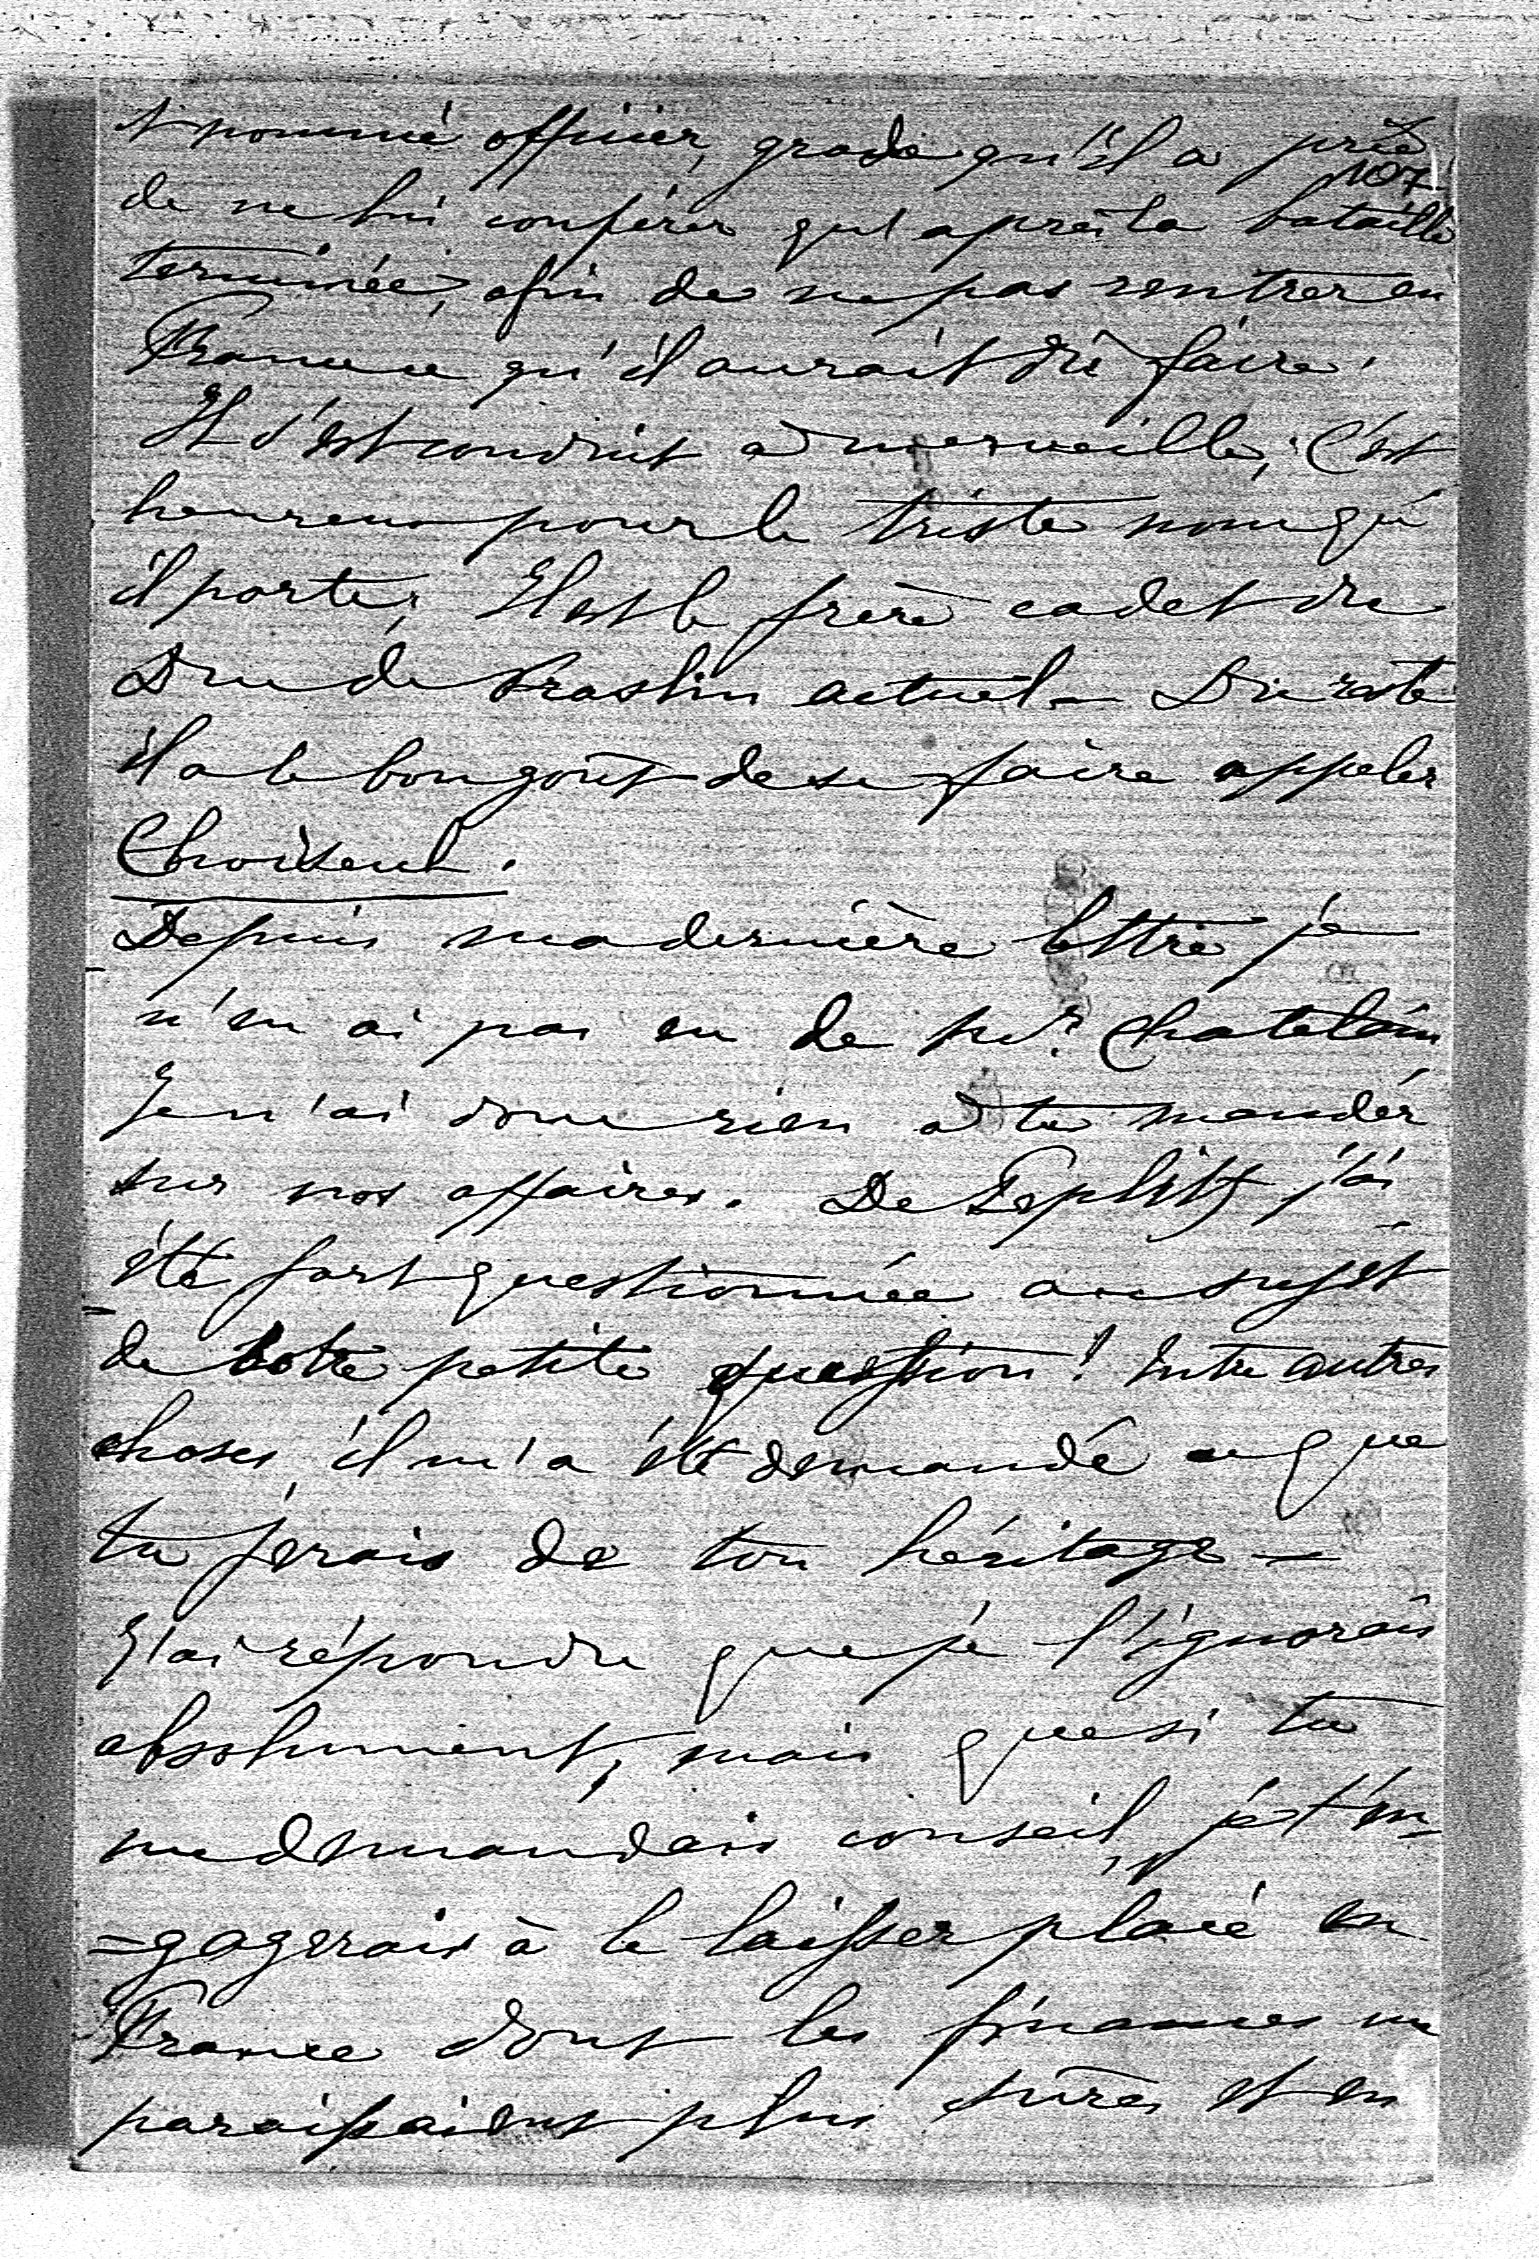 et nommé officier, grade qu'il a prié
107
de ne lui conférer qu'après la bataille
terminée, afin de ne pas rentrer en
France ce qu'il aurait dû faire.
Il s'est conduit à merveille, c'est
heureux pour le triste nom qu'
il porte, Il est le frère cadet du
Duc de Praslin actuel – Du reste
il a le bon goût de se faire appeler
Choiseul.
Depuis ma dernière lettre je
n'en ai pas eu de Mr. Chatelain
Je n'ai donc rien à te mander
sur nos affaires. De Teplitz j'ai
été fort questionnée au sujet
de votre petite question! Entre autres
choses il m'a été demandé ce que
tu ferais de ton héritage –
J'ai répondu que je l'ignorais
absolument, mais que si tu
me demandais conseil, je t'en=
=gagerais à le laisser placé en
France dont les finances me
paraissaient plus sûres et en